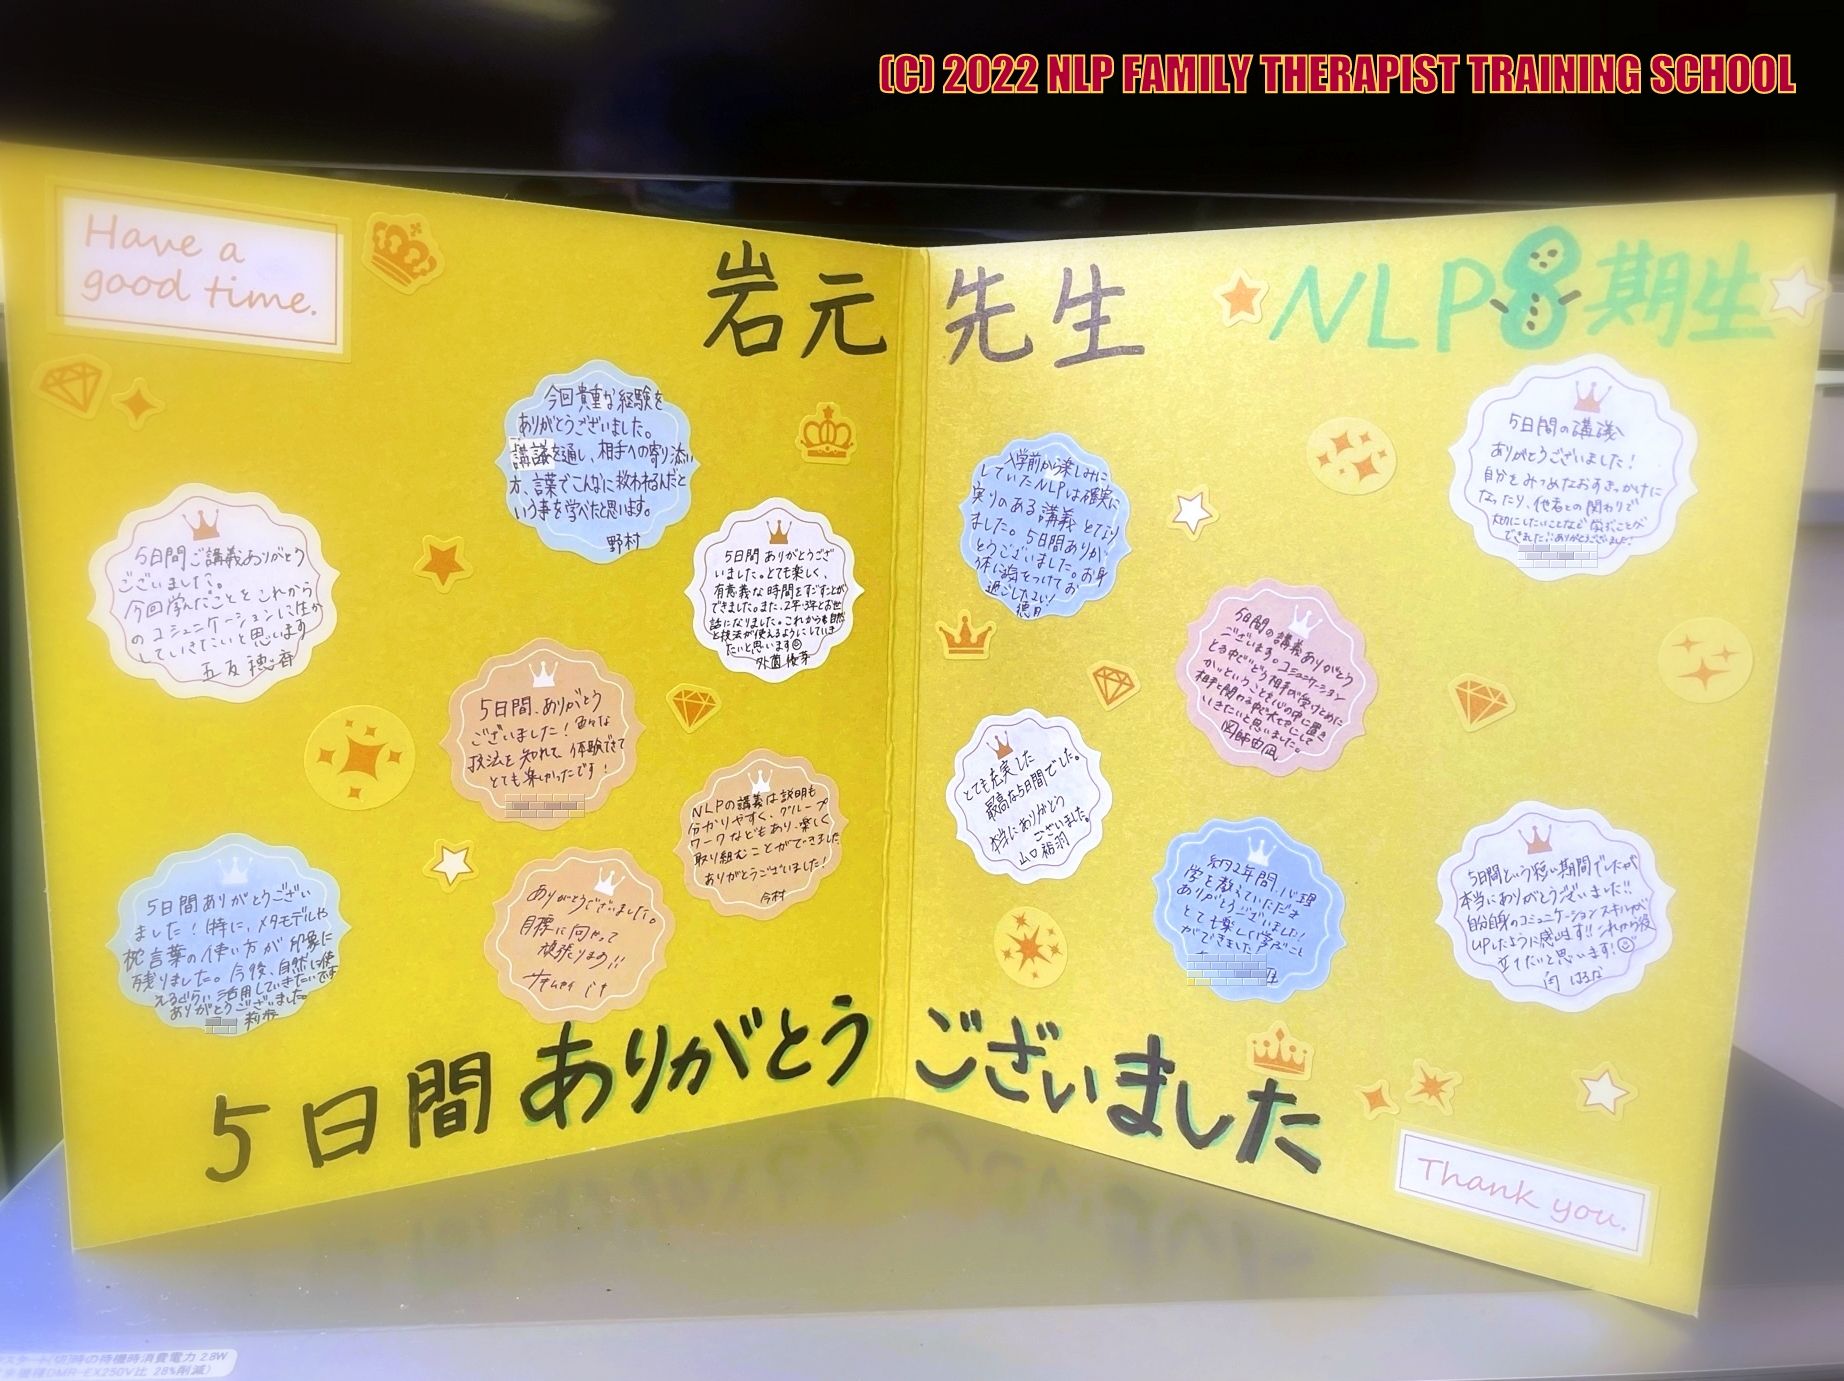 (C) 2022 NLP FAMILY THERAPIST TRAINING SCHOOL
Have a
good time.
岩元先生
NLP8期生
今回貴重な経験を
ありがとうございました。
講議を通し、相手への寄り添い
方、言葉でこんなに救われるんだと
いう事を学べたと思います。
野村
5日間ご講義ありがとう
ございました。
今回学んだことをこれから
のコミュニケーションに生か
していきたいと思います
五反 穂香
5日間ありがとうござ
いました。とても楽しく、
有意義な時間をすごすことが
できました。また、2年・3年とお世
話になりました。これからも自然
と技法が使えるようにしていき
たいと思います
外薗 優芽
5日間、ありがとう
ございました！色々な
技法を知れて、体験できて
とても楽しかったです！
NLPの講義は説明も
分かりやすく、グループ
ワークなどもあり、楽しく
取り組むことができました
ありがとうございました！
今村
5日間ありがとうござい
ました！特に、メタモデルや
枕言葉の使い方が印象に
残りました。今後、自然に使
えるぐらい活用していきたいです
ありがとうございました。
ありがとうございました。
目標に向かって
頑張ります!!
入学前から楽しみに
していたNLPは確実に
実りのある講義となり
ました。5日間ありが
とうございました。お身
体に気をつけてお
過ごし下さい！
徳月
5日間の講議
ありがとうございました！
自分をみつめなおすきっかけに
なったり、他者との関わりで
大切にしたいことなど学ぶことが
できました!!ありがとうございました！
5日間の講義ありがとう
ございます。コミュニケーション
とる中でどう相手が受けとめた
かということを心の中に置き
相手と関わる中で大切にして
いきたいと思いました。
図師由凪
とても充実した
最高な5日間でした。
本当にありがとう
ございました。
山口 裕羽
約2年間、心理
学を教えていただき
ありがとうございました！
とても楽しく学ぶこと
ができました
5日間という短い期間でしたが
本当にありがとうございました!!
自分自身のコミュニケーションスキルが
UPしたように感じます!!これから役
立てたいと思います！
はるな
5日間ありがとうございました
Thank you.
スタート(切)時の待機時消費電力 2.8W
DMR-EX250V比 28%削減)